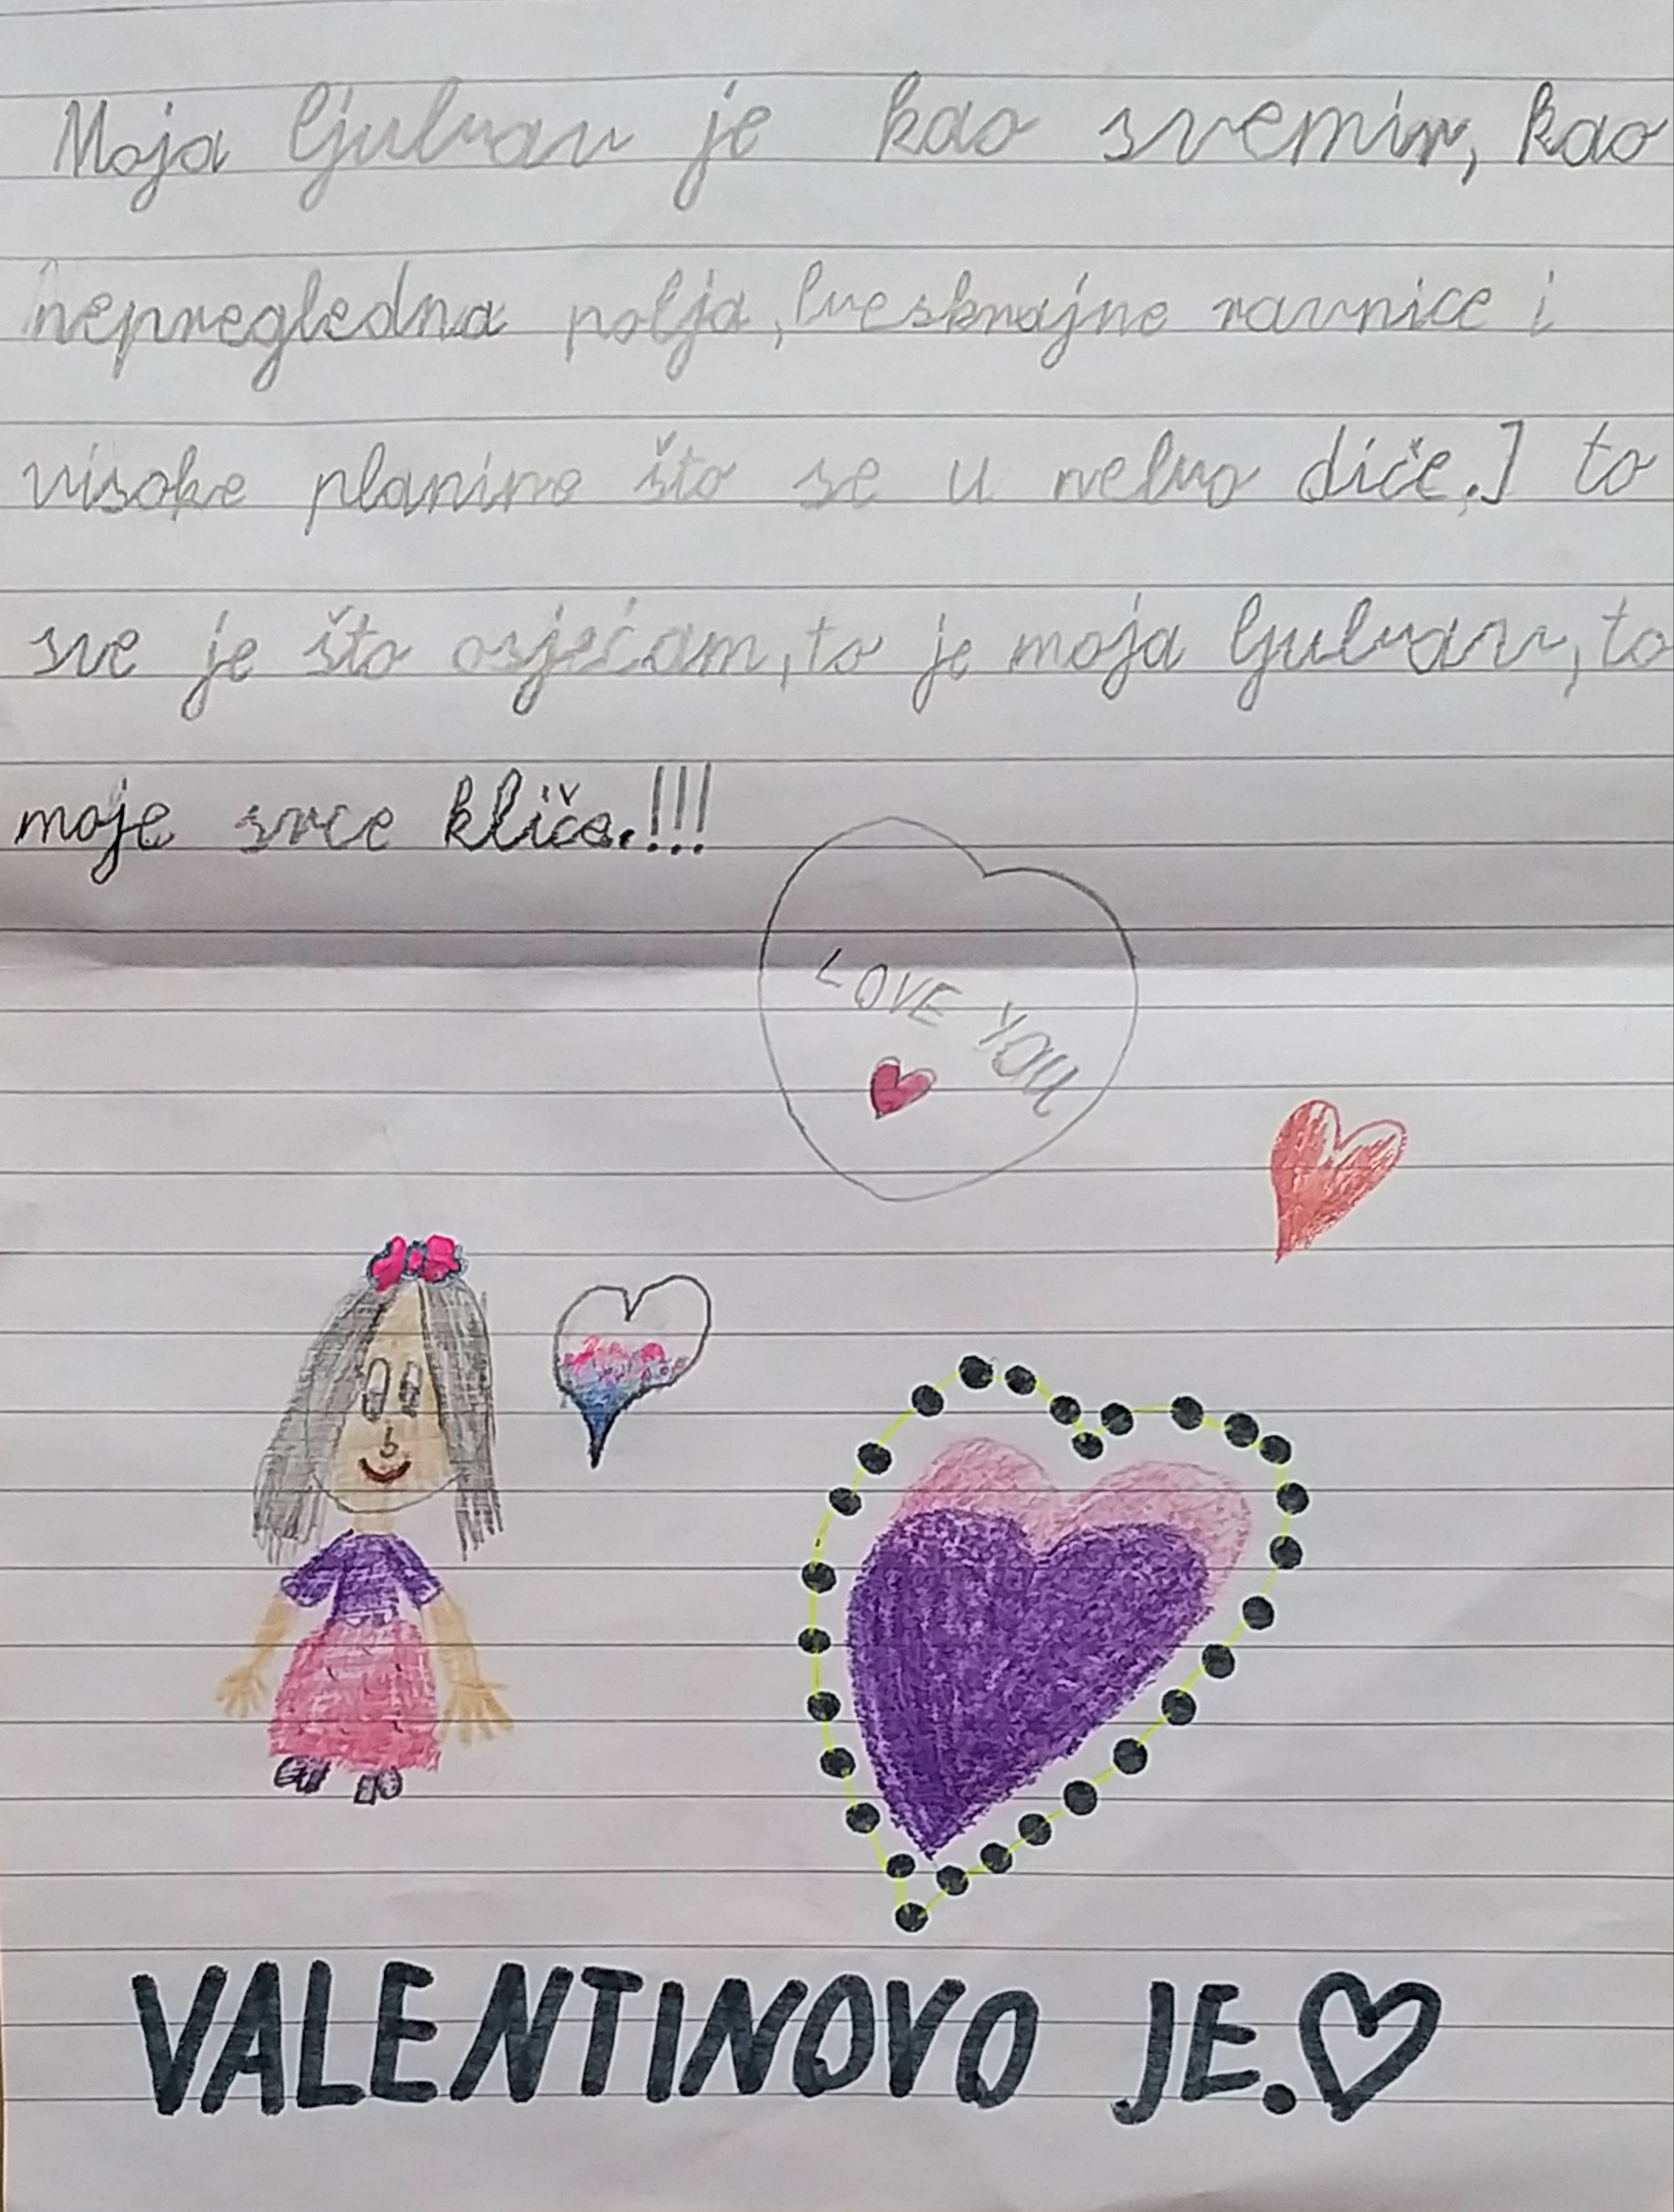 Moja ljubav je kao svemir, kao
nepregledna polja, beskrajne ravnice i
visoke planine što se u nebo diče. I to
sve je što osjećam, to je moja ljubav, to
moje srce kliče.!!!
LOVE YOU
VALENTINOVO JE.